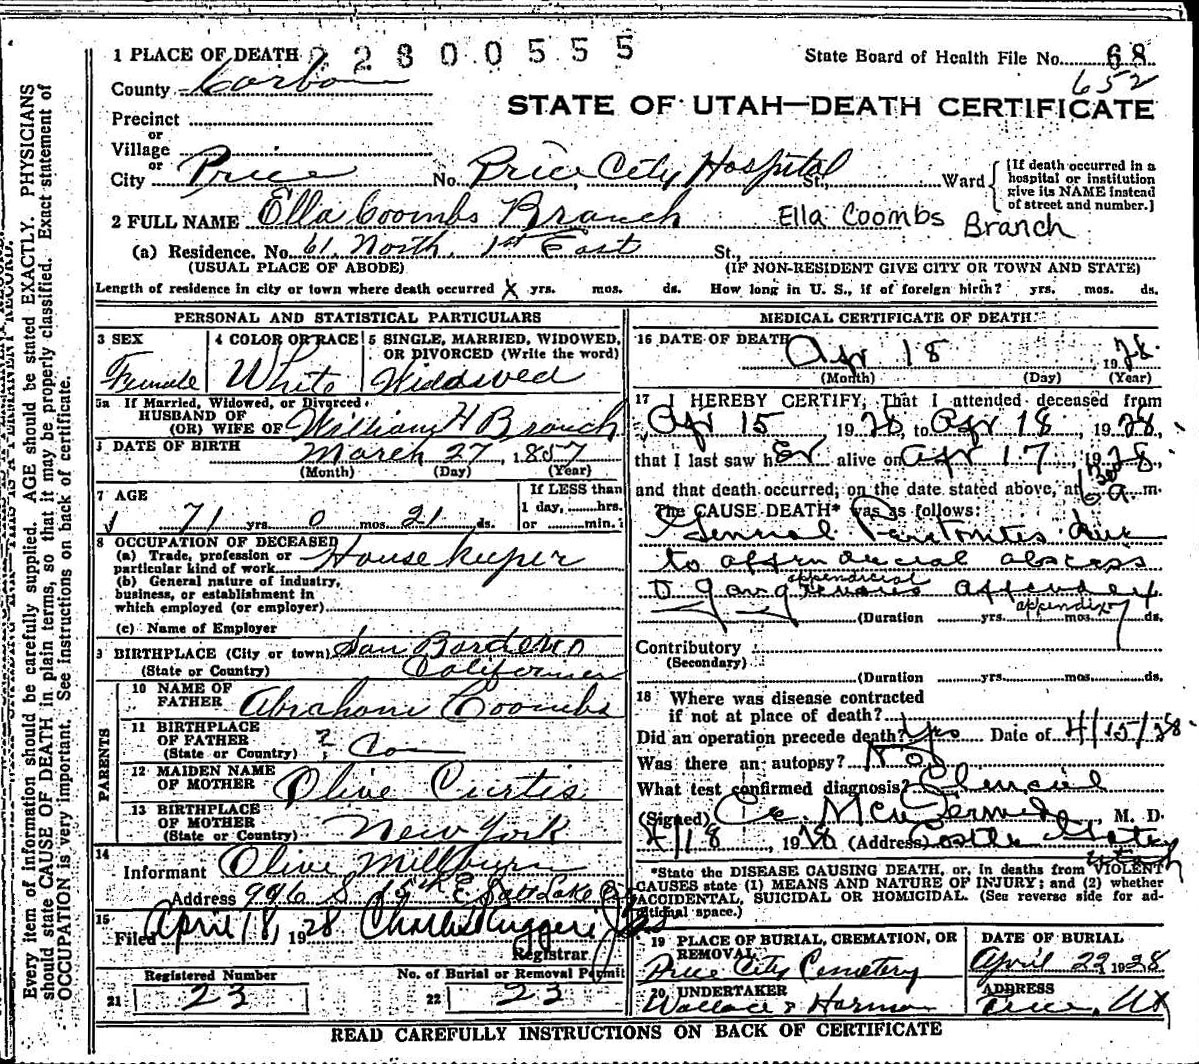 1 PLACE OF DEATH 2 2 8 0 0 5 5 5 State Board of Health File No. 68
County Carbon 652
STATE OF UTAH—DEATH CERTIFICATE
Precinct
or
Village
or
City Price No. Price City Hospital St., Ward
[If death occurred in a hospital or institution give its NAME instead of street and number.]
2 FULL NAME Ella Coombs Branch Ella Coombs Branch
(a) Residence. No. 61 North 1st East St.,
(USUAL PLACE OF ABODE) (IF NON-RESIDENT GIVE CITY OR TOWN AND STATE)
Length of residence in city or town where death occurred X yrs. mos. ds. How long in U. S., if of foreign birth? yrs. mos. ds.
PERSONAL AND STATISTICAL PARTICULARS
3 SEX
Female
4 COLOR OR RACE
White
5 SINGLE, MARRIED, WIDOWED,
OR DIVORCED (Write the word)
Widowed
5a If Married, Widowed, or Divorced
HUSBAND OF
(OR) WIFE OF William H Branch
DATE OF BIRTH March 27, 1857
(Month) (Day) (Year)
7 AGE
71 yrs. 0 mos. 21 ds.
If LESS than
1 day, hrs.
or min.
8 OCCUPATION OF DECEASED
(a) Trade, profession or
particular kind of work Housekeeper
(b) General nature of industry,
business, or establishment in
which employed (or employer)
(c) Name of Employer
9 BIRTHPLACE (City or town) San Bardeno
(State or Country) California
PARENTS
10 NAME OF
FATHER Abraham Coombs
11 BIRTHPLACE
OF FATHER ?
(State or Country)
12 MAIDEN NAME
OF MOTHER Olive Curtis
13 BIRTHPLACE
OF MOTHER New York
(State or Country)
14
Informant Olive Millburn
Address 996 S 15th E Salt Lake
15
Filed April 18, 1928 Charles Ruggeri
Registrar
Registered Number No. of Burial or Removal Permit
21 23 22 23
MEDICAL CERTIFICATE OF DEATH
16 DATE OF DEATH Apr 18, 1928
(Month) (Day) (Year)
17 I HEREBY CERTIFY, That I attended deceased from
Apr 15 1928, to Apr 18, 1928,
that I last saw her alive on Apr 17, 1928,
and that death occurred, on the date stated above, at 6 30 a. m.
The CAUSE DEATH* was as follows:
General Peritonites due
to appendicial abscess
appendicial
gangrenous appendix
appendix
(Duration yrs. mos. ds.
Contributory
(Secondary)
(Duration yrs. mos. ds.
18 Where was disease contracted
if not at place of death?
Did an operation precede death? Yes Date of 4/15/28
Was there an autopsy? No
What test confirmed diagnosis? Clinical
(Signed) , M. D.
4/18, 1928 (Address) Castle Gate
Utah
*State the DISEASE CAUSING DEATH, or, in deaths from VIOLENT
CAUSES state (1) MEANS AND NATURE OF INJURY; and (2) whether
ACCIDENTAL, SUICIDAL OR HOMICIDAL. (See reverse side for ad-
ditional space.)
19 PLACE OF BURIAL, CREMATION, OR
REMOVAL
Price City Cemetery
DATE OF BURIAL
April 22, 1928
20 UNDERTAKER
Wallace & Harmon
ADDRESS
Price, Ut
READ CAREFULLY INSTRUCTIONS ON BACK OF CERTIFICATE
Every item of information should be carefully supplied. AGE should be stated EXACTLY. PHYSICIANS
should state CAUSE OF DEATH in plain terms, so that it may be properly classified. Exact statement of
OCCUPATION is very important. See instructions on back of certificate.